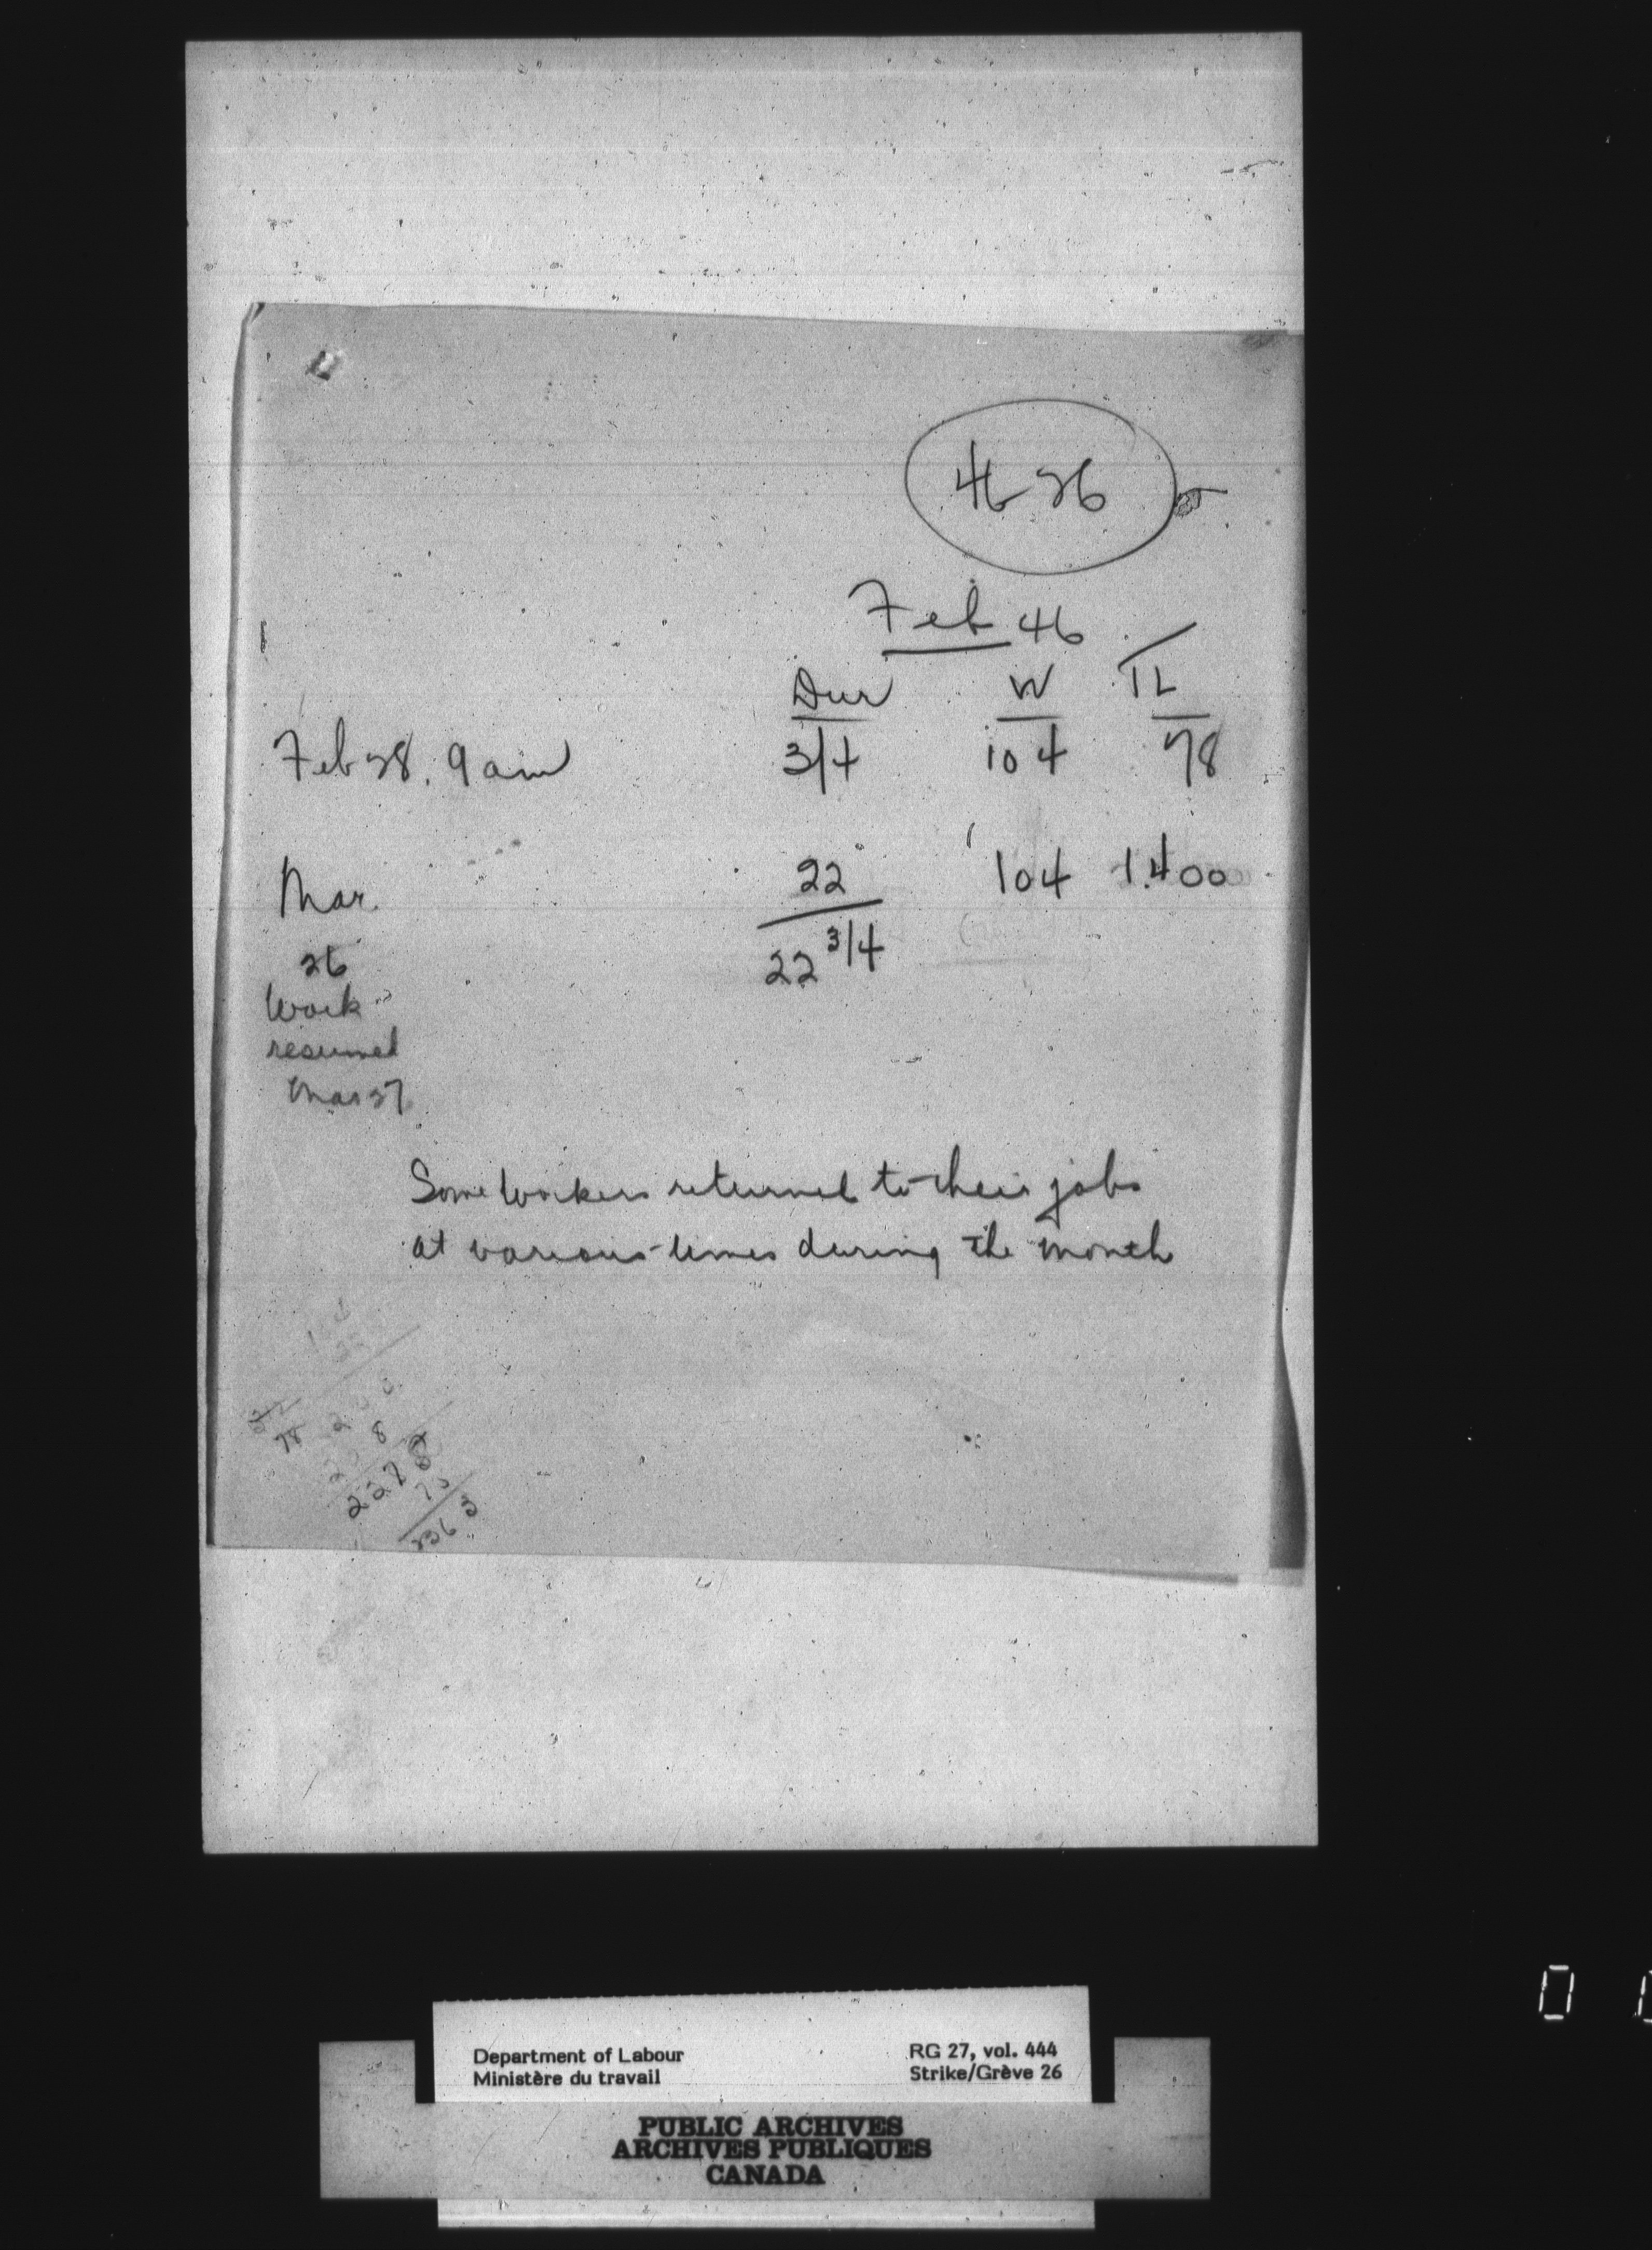 46-26
Feb 46
Dur W TL
Feb 28, 9 am 3/4 104 78
Mar. 22 104 1400
26 22 3/4
Work
resumed
Mar 27
Some workers returned to their jobs
at various times during the month
78
8
2278
75
2363
Department of Labour
Ministère du travail
RG 27, vol. 444
Strike/Grève 26
PUBLIC ARCHIVES
ARCHIVES PUBLIQUES
CANADA
0